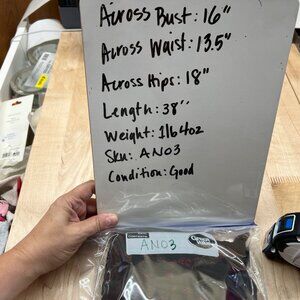 Across Bust: 16"
Across Waist: 13.5"
Across Hips: 18"
Length: 38"
Weight: 1lb 4oz
Sku: AN03
Condition: Good
AN03